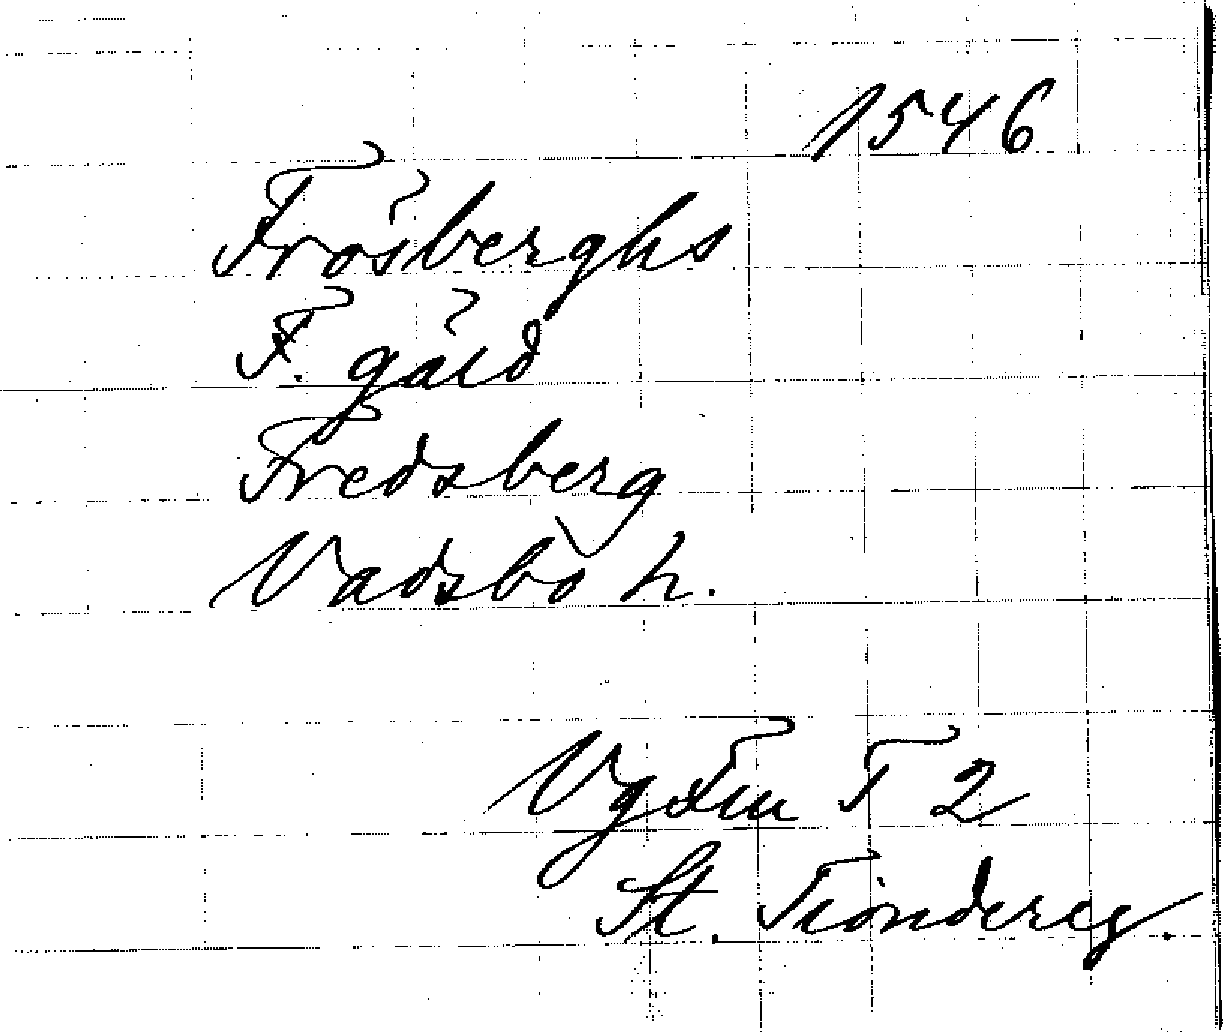 1546
Frösberghs
F. gäld
Fredsberg
Vadsbo h.
Vg Fm T 2
St. Tiondereg.